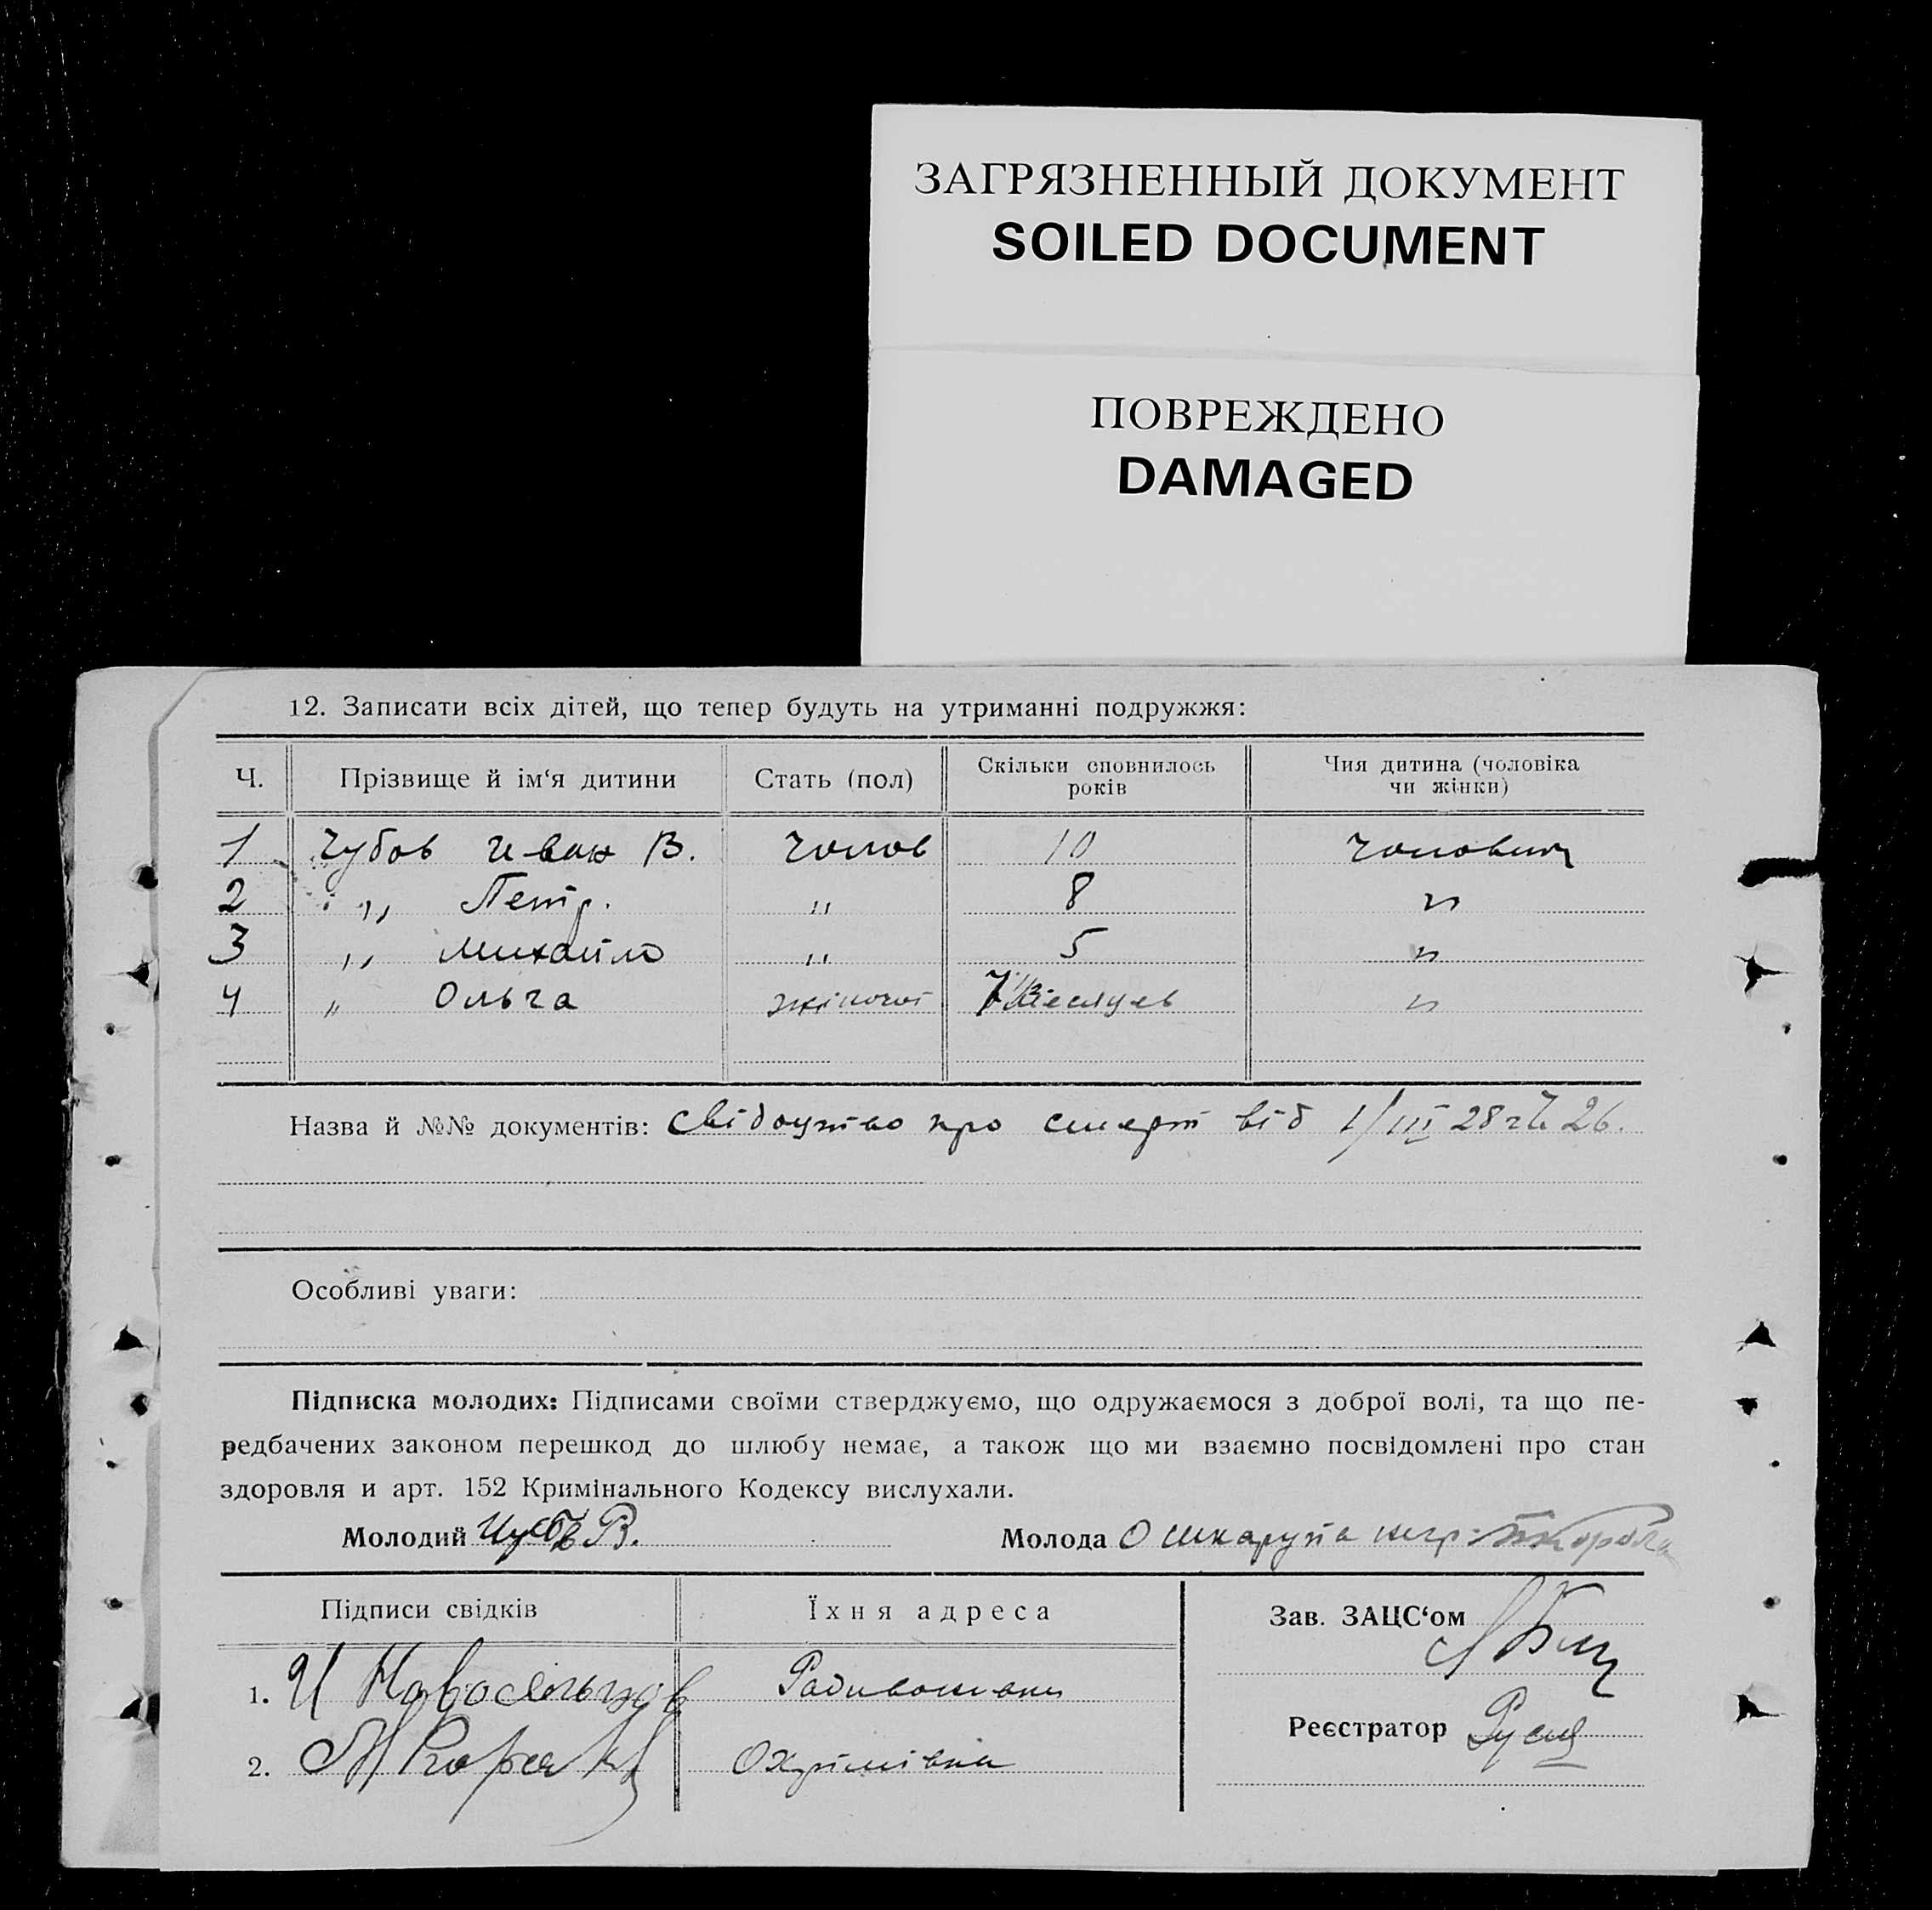 ЗАГРЯЗНЕННЫЙ ДОКУМЕНТ
SOILED DOCUMENT
ПОВРЕЖДЕНО
DAMAGED
12. Записати всіх дітей, що тепер будуть на утриманні подружжя:
Ч. Прізвище й ім‘я дитини Стать (пол) Скільки сповнилось років Чия дитина (чоловіка чи жінки)
1 Чубов Иван В. Чолов 10
2 „ Петр. „ 8 „
3 „ Михайло „ 5 „
4 „ Ольга жіночої „
Назва й №№ документів: свідоцтво про смерт від 1/III 28 26.
Особливі уваги:
Підписка молодих: Підписами своїми стверджуємо, що одружаємося з доброї волі, та що пе-
редбачених законом перешкод до шлюбу немає, а також що ми взаємно посвідомлені про стан
здоровля и арт. 152 Кримінального Кодексу вислухали.
Молодий Чубов В. Молода
Підписи свідків Їхня адреса Зав. ЗАЦС‘ом
1. И Новосельцов
Реєстратор
2. Охрімівка